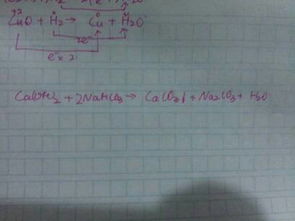 CuO + H₂ → Cu + H₂O
2e⁻
e⁻ × 2
Ca(OH)₂ + 2NaHCO₃ → CaCO₃↓ + Na₂CO₃ + H₂O